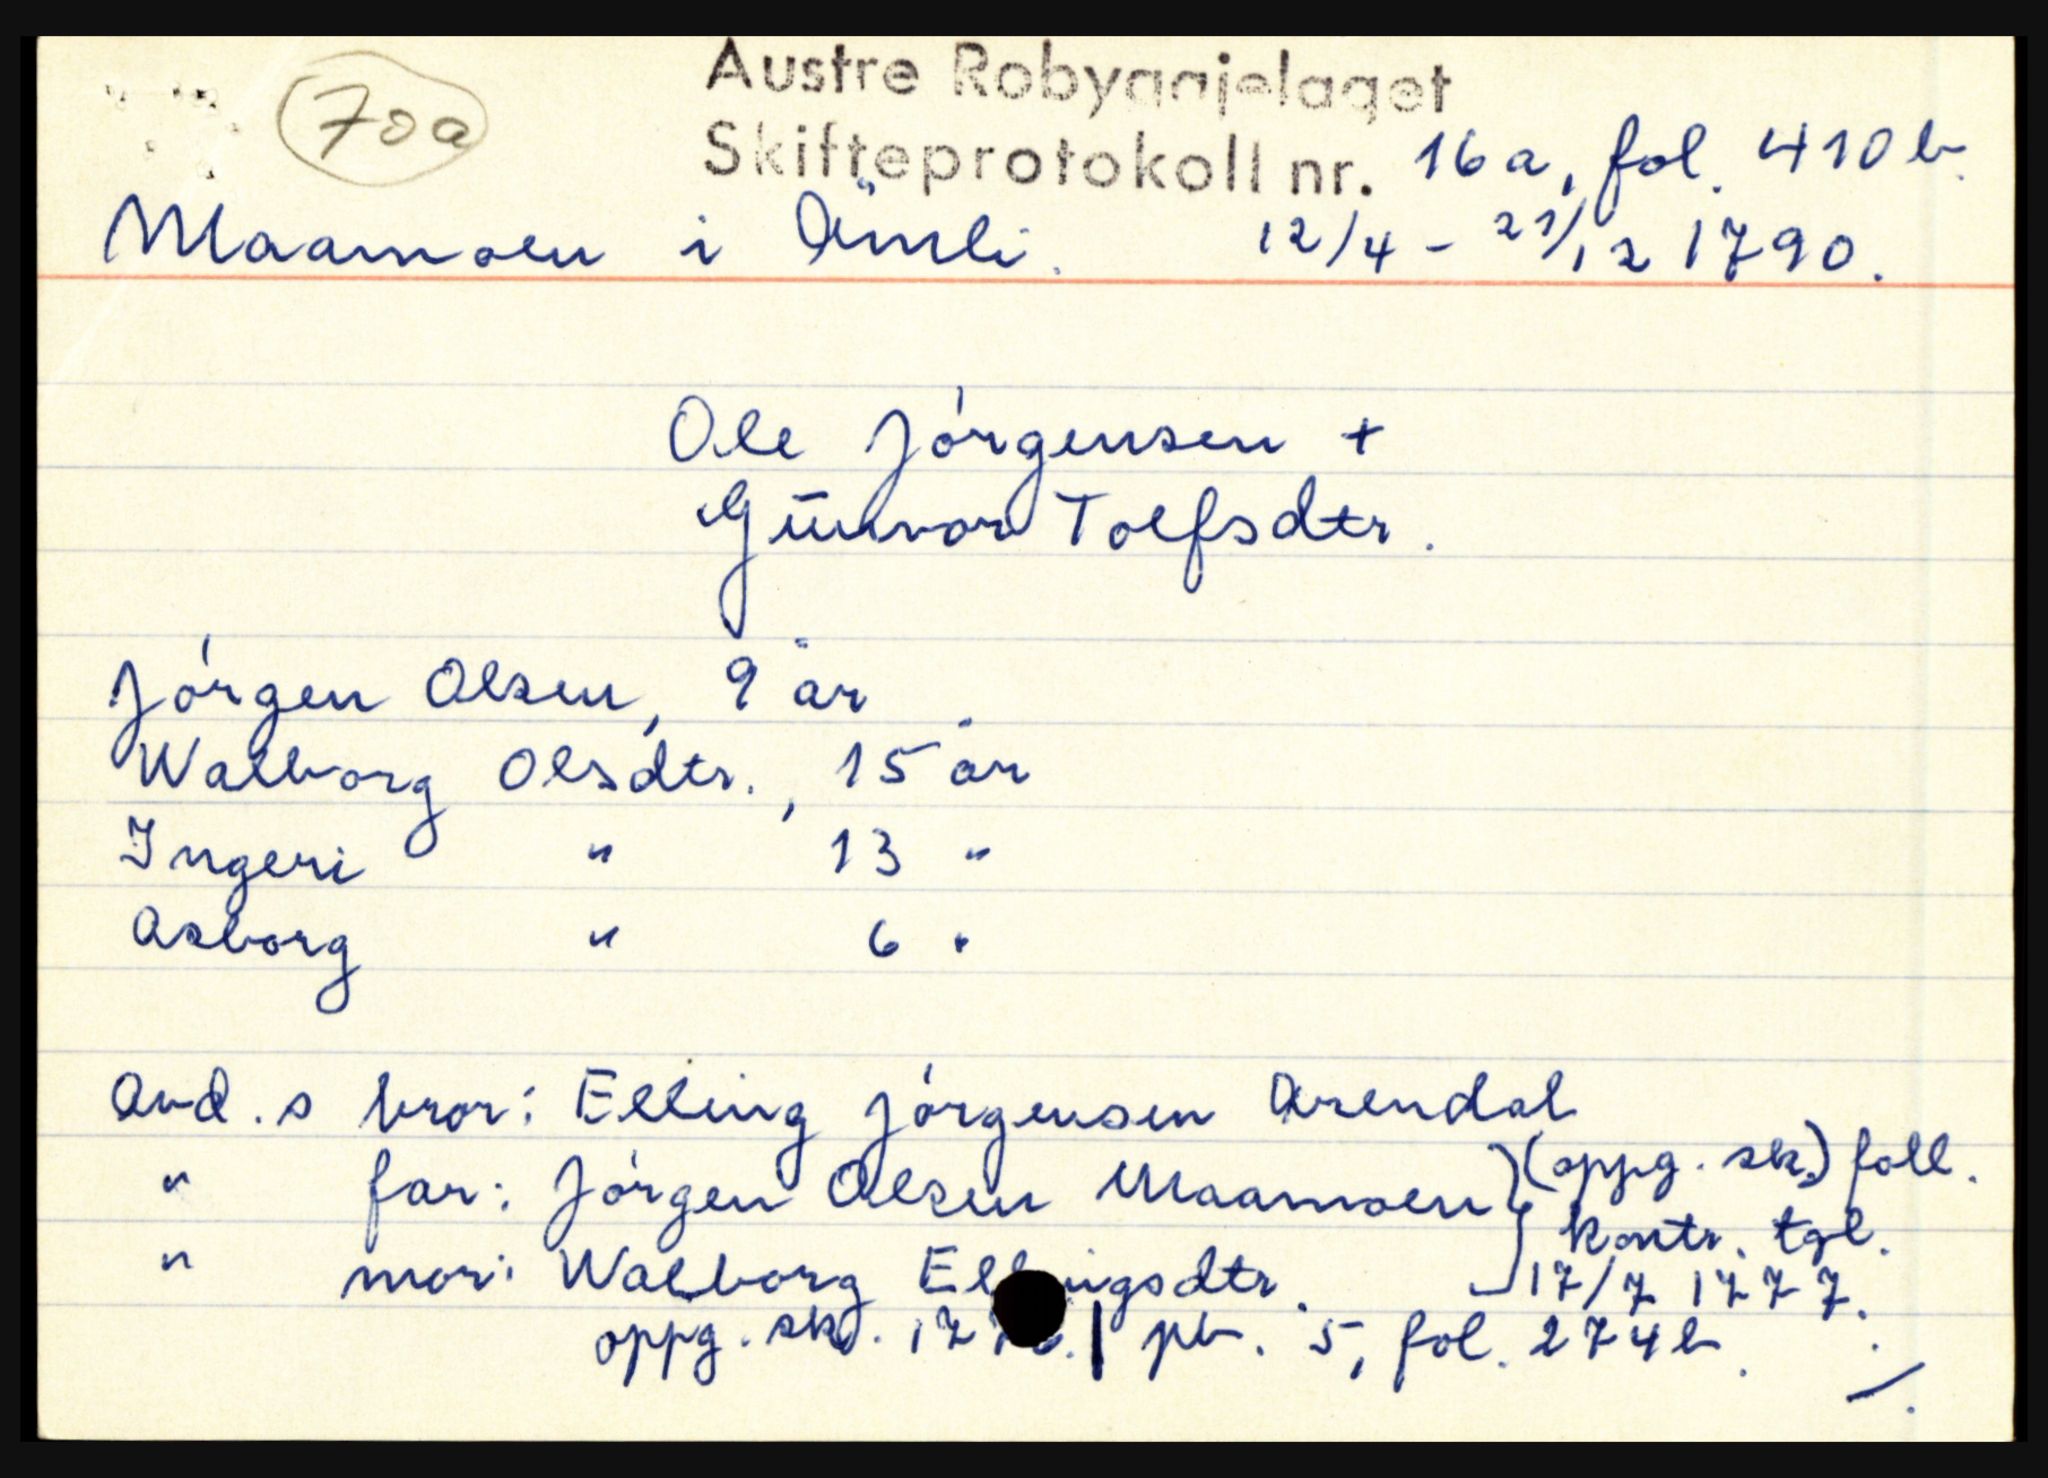 70a
Austre Robyggjelaget
Skifteprotokoll nr. 16a, fol. 410b.
Maamoen i Åmli. 12/4 - 21/12 1790.
Ole Jórgensen +
Gunvor Tolfsdtr.
Jórgen Olsen, 9 år
Walborg Olsdtr., 15 år
Ingeri " 13 "
Asborg " 6 "
Avd.s bror: Elling Jórgensen Arendal
" far: Jórgen Olsen Maamoen } (oppg. sk.) foll.
kontr. tgl.
" mor: Walborg Ellingsdtr. 17/7 1777.
oppg. sk. pb. 5, fol. 274b.